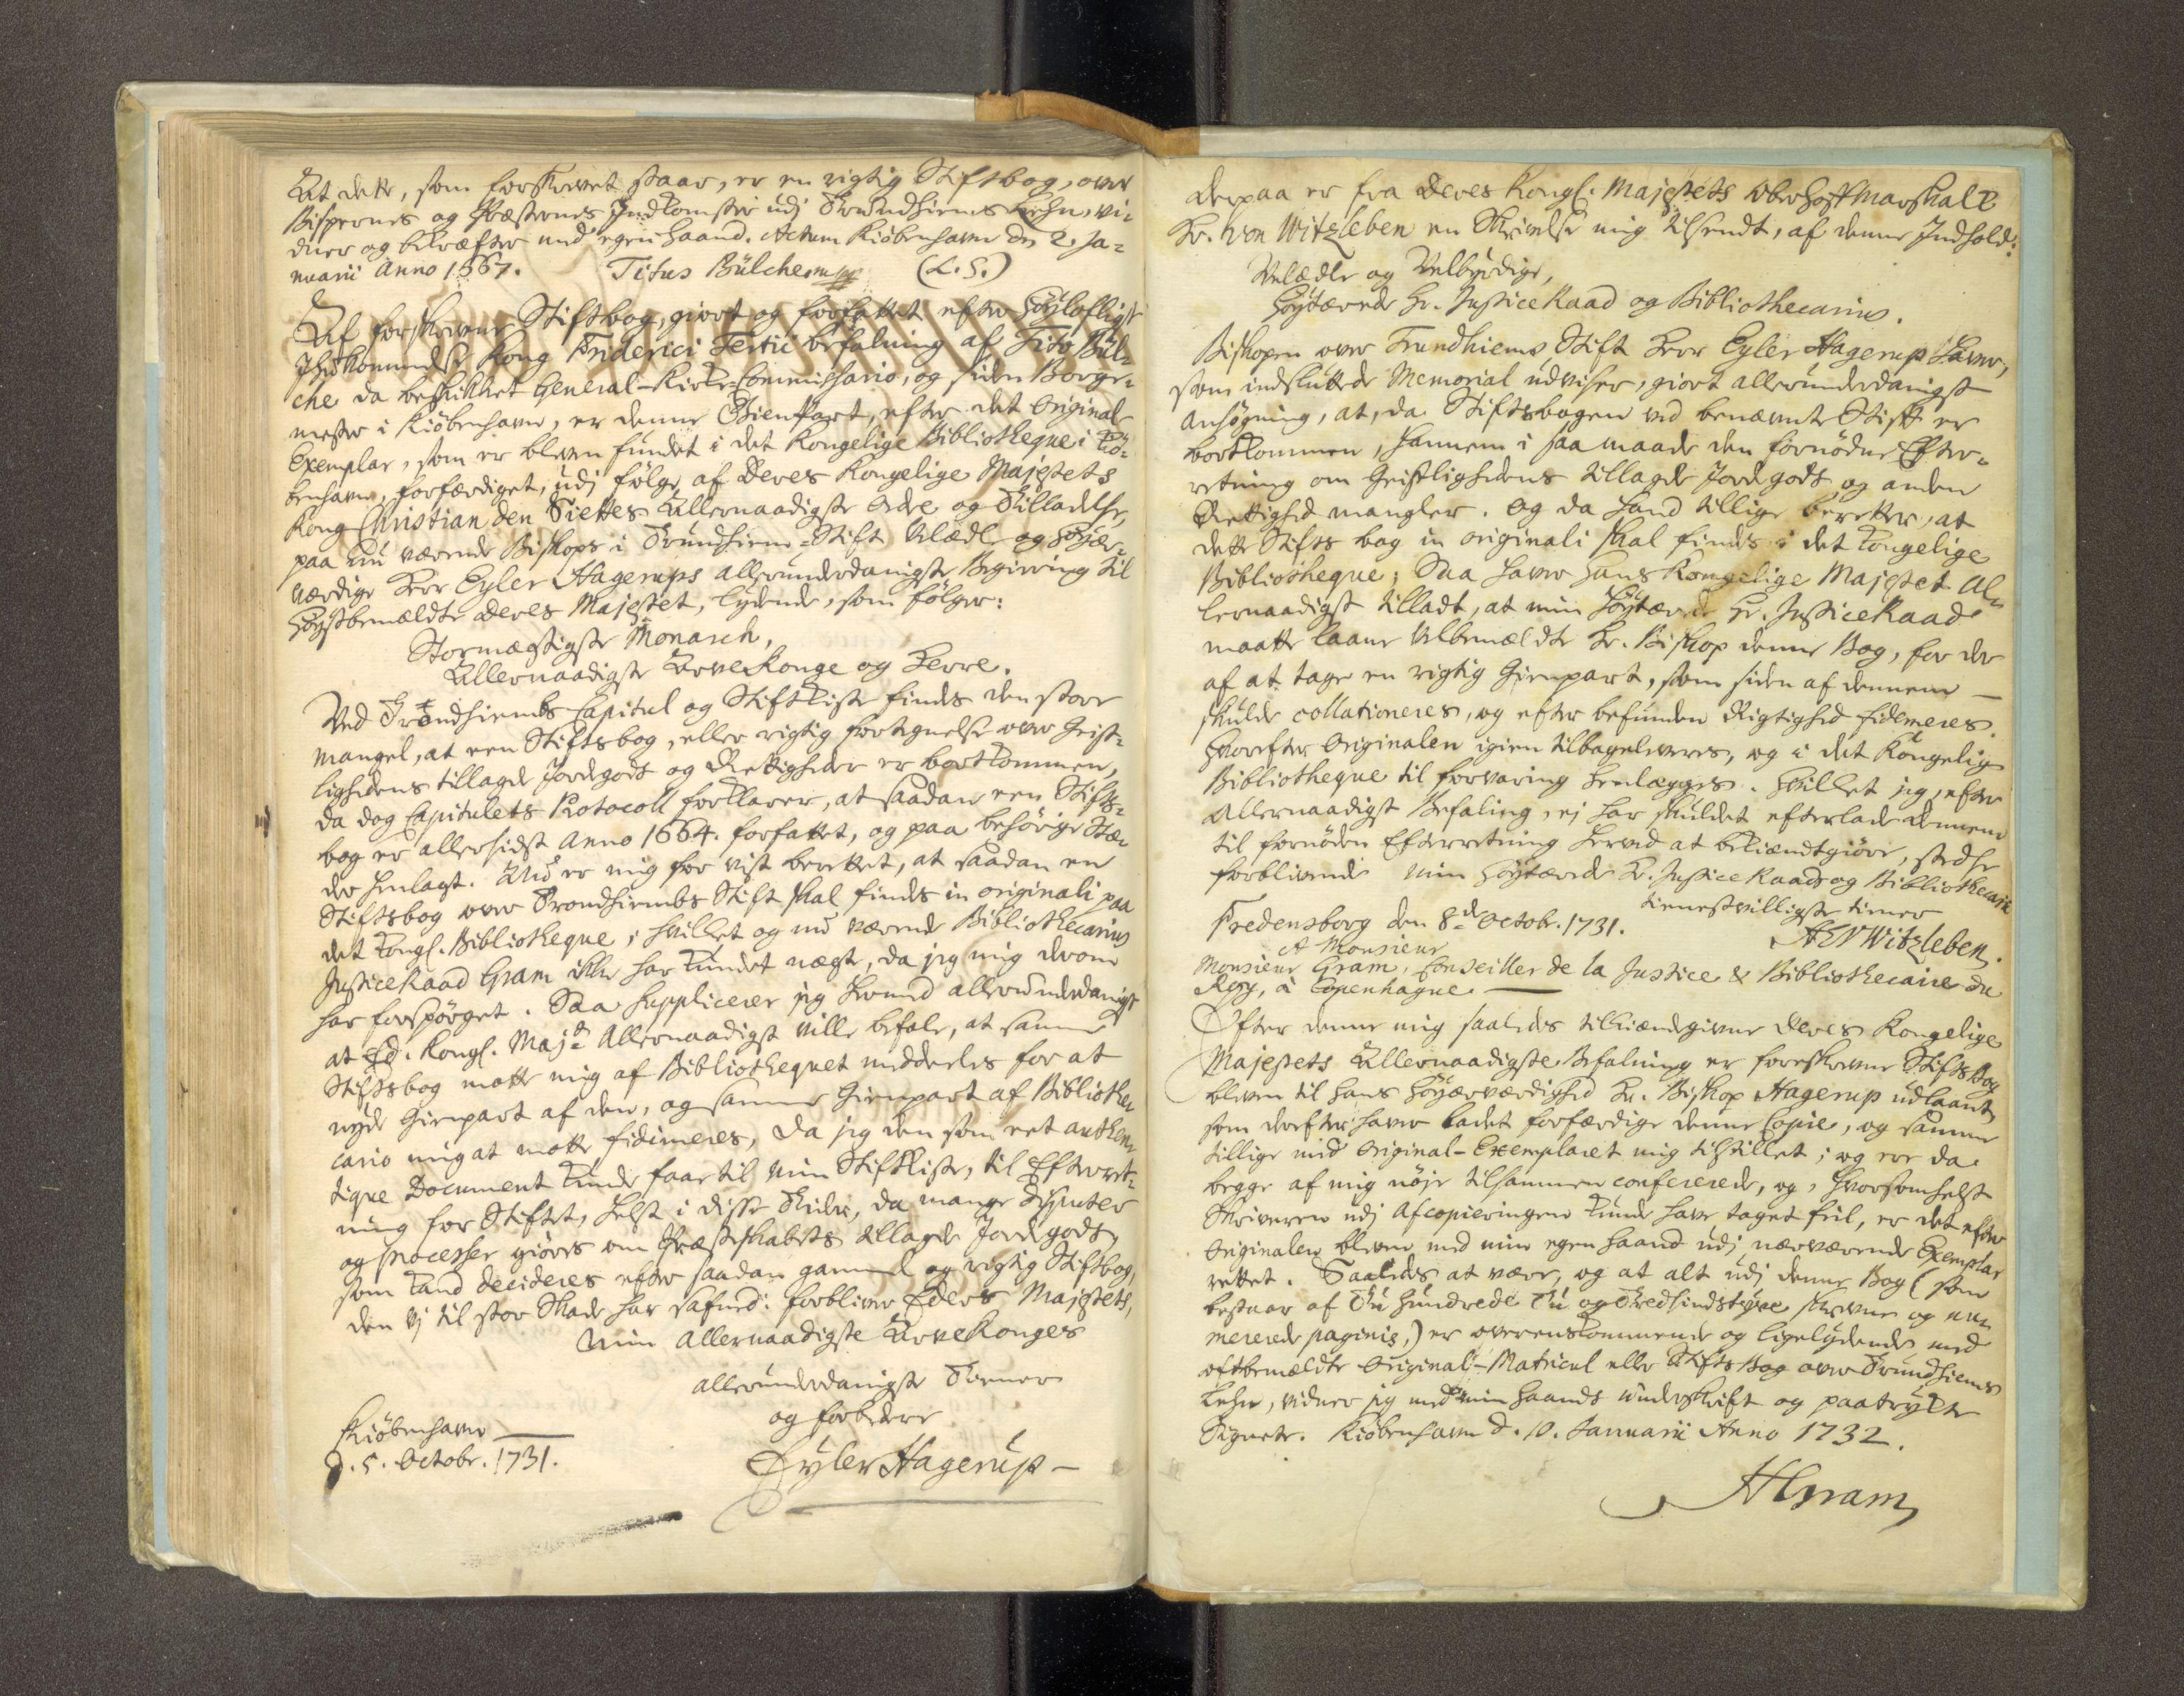 At dette, som forskrevet staar, er en rigtig Stiftbog, over
Bispernes og Præsternes Indkomster udj Trundhiems Lehn, vi-
dner og bekræfter med egen haand. Actum Kiöbenhavn den 2. Ja-
nuarii Anno 1667. Titus Bülche mpp (L.S.)
Af forskrevne Stiftbog, giort og forfattet efter Höylofligst
Ihukommelse Kong Friderici Tertii befalning af Tito Bül-
che da beskikket General-Kirke-Commissario, og siden Borge-
mester i Kiöbenhavn, er denne Gienpart, efter det Original
Exemplar, som er bleven fundet i det Kongelige Bibliotheque i Kiö-
benhavn, forfærdiget, udj fölge af Deres Kongelige Majestets
Kong Christian den Siettes Allernaadigste Ordre og Tilladelse,
paa nu værende Biskops i Trundhiems-Stift Velædle og Höyær-
værdige Herr Eyler Hagerups allerunderdanigste Begiering til
Höystbemældte Deres Majestet, lydende, som fölger:
Stormægtigste Monarch,
Allernaadigste Arve Konge og Herre.
Ved Trondhiembs Capitul og Stiftkiste findes den store
mangel, at een Stiftsbog, eller rigtig fortegnelse over Geist-
lighedens tillagde Jordegods og Rettigheder er bortkommen,
da dog Capitulets Protocoll forklarer, at saadan een Stifts-
bog er allersidst Anno 1664. forfattet, og paa behörige Stæ-
der henlagt. Nu er mig for vist berettet, at saadan en
Stiftsbog over Trondhiembs Stift skal findes in originali paa
det Kongl. Bibliotheque, hvilket og nu værende Bibliothecarius
Justice Raad Gram ikke har kundet nægte, da jeg mig derom
har forspörget. Saa supplicerer jeg hermed allerunderdanigst
at Ed. Kongl. Majt. Allernaadigst ville befale, at samme
Stiftsbog motte mig af Bibliothequet meddeeles for at
nyde Gienpart af den, og samme Gienpart af Bibliothe-
cario mig at motte fidimeres, da jeg den som eet authen-
tique Document kunde faae til min Stiftkiste, til Efterret-
ning for Stiftet, helst i disse Tider, da mange Disputer
og processer giöres om Præsteskabets tillagde Jordegods,
som kand decideres efter saadan gammel og rigtig Stiftbog,
den vj til stor Skade har savned. forbliver Eders Majestets,
Min Allernaadigste Arve Konges
allerunderdanigste Tiener
og forbedere
Kiöbenhavn
d. 5. Octobr. 1731.
Eyler Hagerup
Derpaa er fra Deres Kongl. Majestets Oberhoffmarskall
Hr. von Witzleben en Skrivelse mig tilsendt, af denne Indhold:
Velædle og Velbyrdige,
Höytærede Hr. Justice Raad og Bibliothecarius.
Biskopen over Trundhiems Stift Herr Eyler Hagerup haver,
som indsluttede Memorial udviser, giort allerunderdanigst
ansögning, at, da Stiftsbogen ved benævnte Stift er
bortkommen, hannem i saa maade den fornödne Efter-
retning om Geistlighedens tillagde Jordegods og anden
Rettighed mangler. Og da hand tillige beretter, at
dette Stifts bog in originali skal findes i det Kongelige
Bibliotheque; Saa haver Hans Kongelige Majestet Al-
lernaadigst tilladt, at min Höytærede Hr. Justice Raad
maatte laane Velbemældte Hr. Biskop denne Bog, for der
af at tage en rigtig Gienpart, som siden af dennem
skulde collationeres, og efter befunden Rigtighed fidemeres.
Hvorefter Originalen igien tilbageleveres, og i det Kongelig
Bibliotheque til forvaring henlægges. Hvilket jeg, efter
Allernaadigst Befaling, ej har skuldet efterlade Dennem
til fornöden Efterretning herved at bekiendtgiöre, stedse
forblivende Min Höytærede Hr. Justice Raads og Bibliothecarii
tienestvilligste tiener
Fredensborg den 8de Octobr. 1731.
A E V Witzleben.
A Monsieur
Monsieur Gram, Conseiller de la Justice & Bibliothecaire du
Roy, à Copenhague.
Efter denne mig saaledes tilkiendegivne Deres Kongelige
Majestets Allernaadigste Befalning er foreskrevne Stifts Bog
bleven til Hans Höyærværdighed Hr. Biskop Hagerup udlaant,
som derefter haver ladet forfærdige denne Copie, og samme
tillige med Original-Exemplaret mig tilstillet; og ere da
begge af mig nöje tilsammen confererede, og, hvorsomhelst
Skriveren udj Afcopieringen kunde have taget feil, er det efter
Originalen bleven med min egen haand udj nærværende Exemplar
rettet. Saaledes at være, og at alt udj denne Bog (som
bestaar af Tu hundrede Tu og Tredsindstyve skrevne og nu-
mererede paginis,) er overenskommende og ligelydende med
oftbemældte Original-Matricul eller Stifts Bog over Trundhiems
Lehn, vidner jeg med min Haands underskrift og paatrykte
Signete. Kiöbenhavn d. 10. Januarii Anno 1732.
H Gram